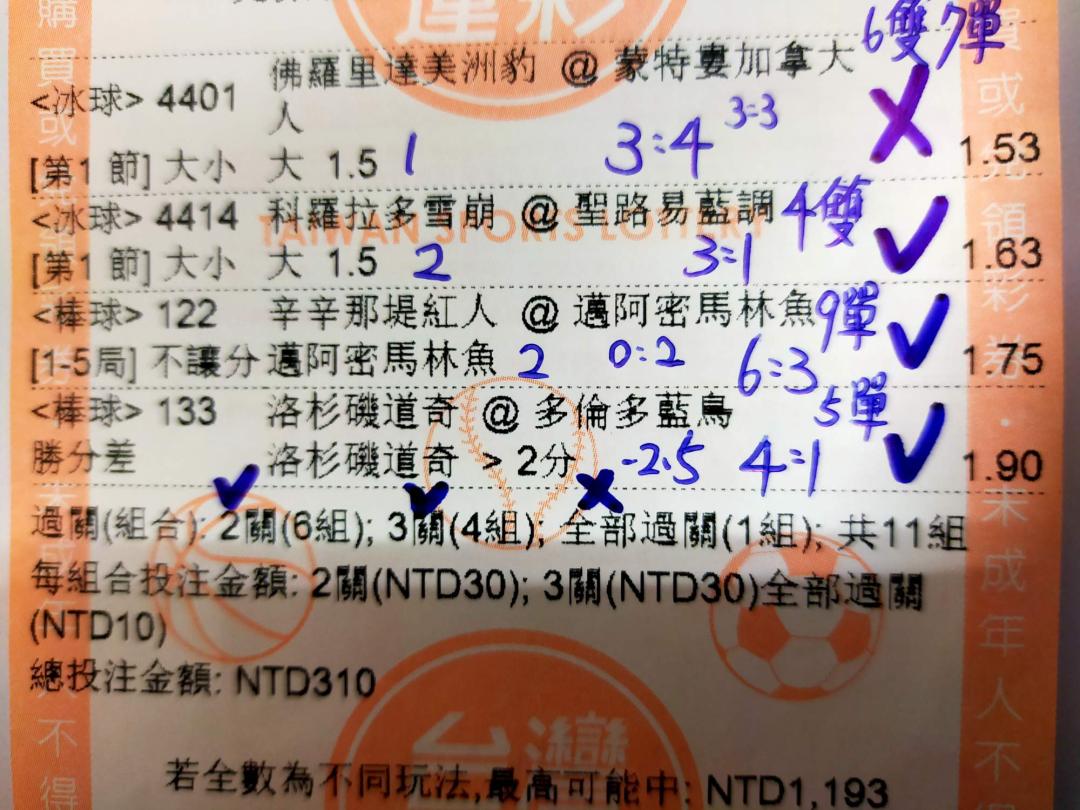 運彩
6雙7單
佛羅里達美洲豹 @ 蒙特婁加拿大
<冰球> 4401
人
3=3
X
[第1 節] 大小 大 1.5 1 3:4 1.53
<冰球> 4414 科羅拉多雪崩 @ 聖路易藍調 4雙
TAIWAN SPORTS LOTTERY
[第1 節] 大小 大 1.5 2 3=1 ✓ 1.63
<棒球> 122 辛辛那堤紅人 @ 邁阿密馬林魚 9單
[1-5局] 不讓分 邁阿密馬林魚 2 0:2 6:3 ✓ 1.75
<棒球> 133 洛杉磯道奇 @ 多倫多藍鳥 5單
勝分差 洛杉磯道奇 > 2分 -2.5 4=1 ✓ 1.90
✓ ✓ X
過關(組合): 2關(6組); 3關(4組); 全部過關(1組); 共11組
每組合投注金額: 2關(NTD30); 3關(NTD30)全部過關
(NTD10)
總投注金額: NTD310
台灣
若全數為不同玩法,最高可能中: NTD1,193
購買或
不得
領彩券·未成年人不